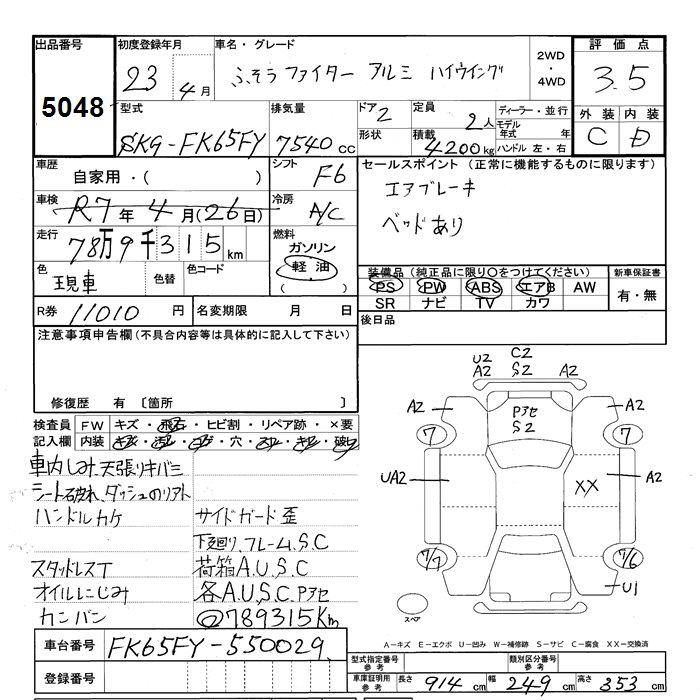 出品番号 5048
初度登録年月 23 4月
車名・グレード ふそう ファイター アルミ ハイウイング
2WD ・ 4WD
評価点 3.5
外装 C 内装 D
型式 SKG-FK65FY
排気量 7540 cc
ドア 2
形状
定員 2人
積載 4200kg
ディーラー・並行
モデル年式 年
ハンドル 左・右
車歴 自家用・( )
シフト F6
車検 R7年4月(26日)
冷房 A/C
走行 78万9千315km
燃料 ガソリン 軽油 ( )
色 現車 色替 色コード
R券 11010 円 名変期限 月 日
セールスポイント (正常に機能するものに限ります)
エアブレーキ
ベッドあり
装備品 (純正品に限り○をつけてください)
PS PW ABS エアB AW
SR ナビ TV カワ
新車保証書 有・無
後日品
注意事項申告欄 (不具合内容等は具体的に記入して下さい)
修復歴 有 〔箇所 〕
検査員記入欄 FW キズ・飛石・ヒビ割・リペア跡・×要
内装 キズ・コゲ・穴・スレ・キレ・破れ
車内しみ、天張りキバミ
シート破れ、ダッシュのリアト
ハンドルカケ
サイドガード歪
下廻り、フレームS.C
スタッドレスT
荷箱A.U.S.C
オイルにじみ
各A.U.S.C Pアセ
カンバン
◎789315Km
車台番号 FK65FY-550029
登録番号
U2 A2 C2 S2 A2
A2 Pアセ S2 A2
7 7
UA2 XX A2
7/7 7/6
U1
スペア
A-キズ E-エクボ U-凹み W-補修跡 S-サビ C-腐食 XX-交換済
型式指定番号 参考 類別区分番号 参考
車庫証明用 参考 長さ 914 cm 幅 249 cm 高さ 353 cm